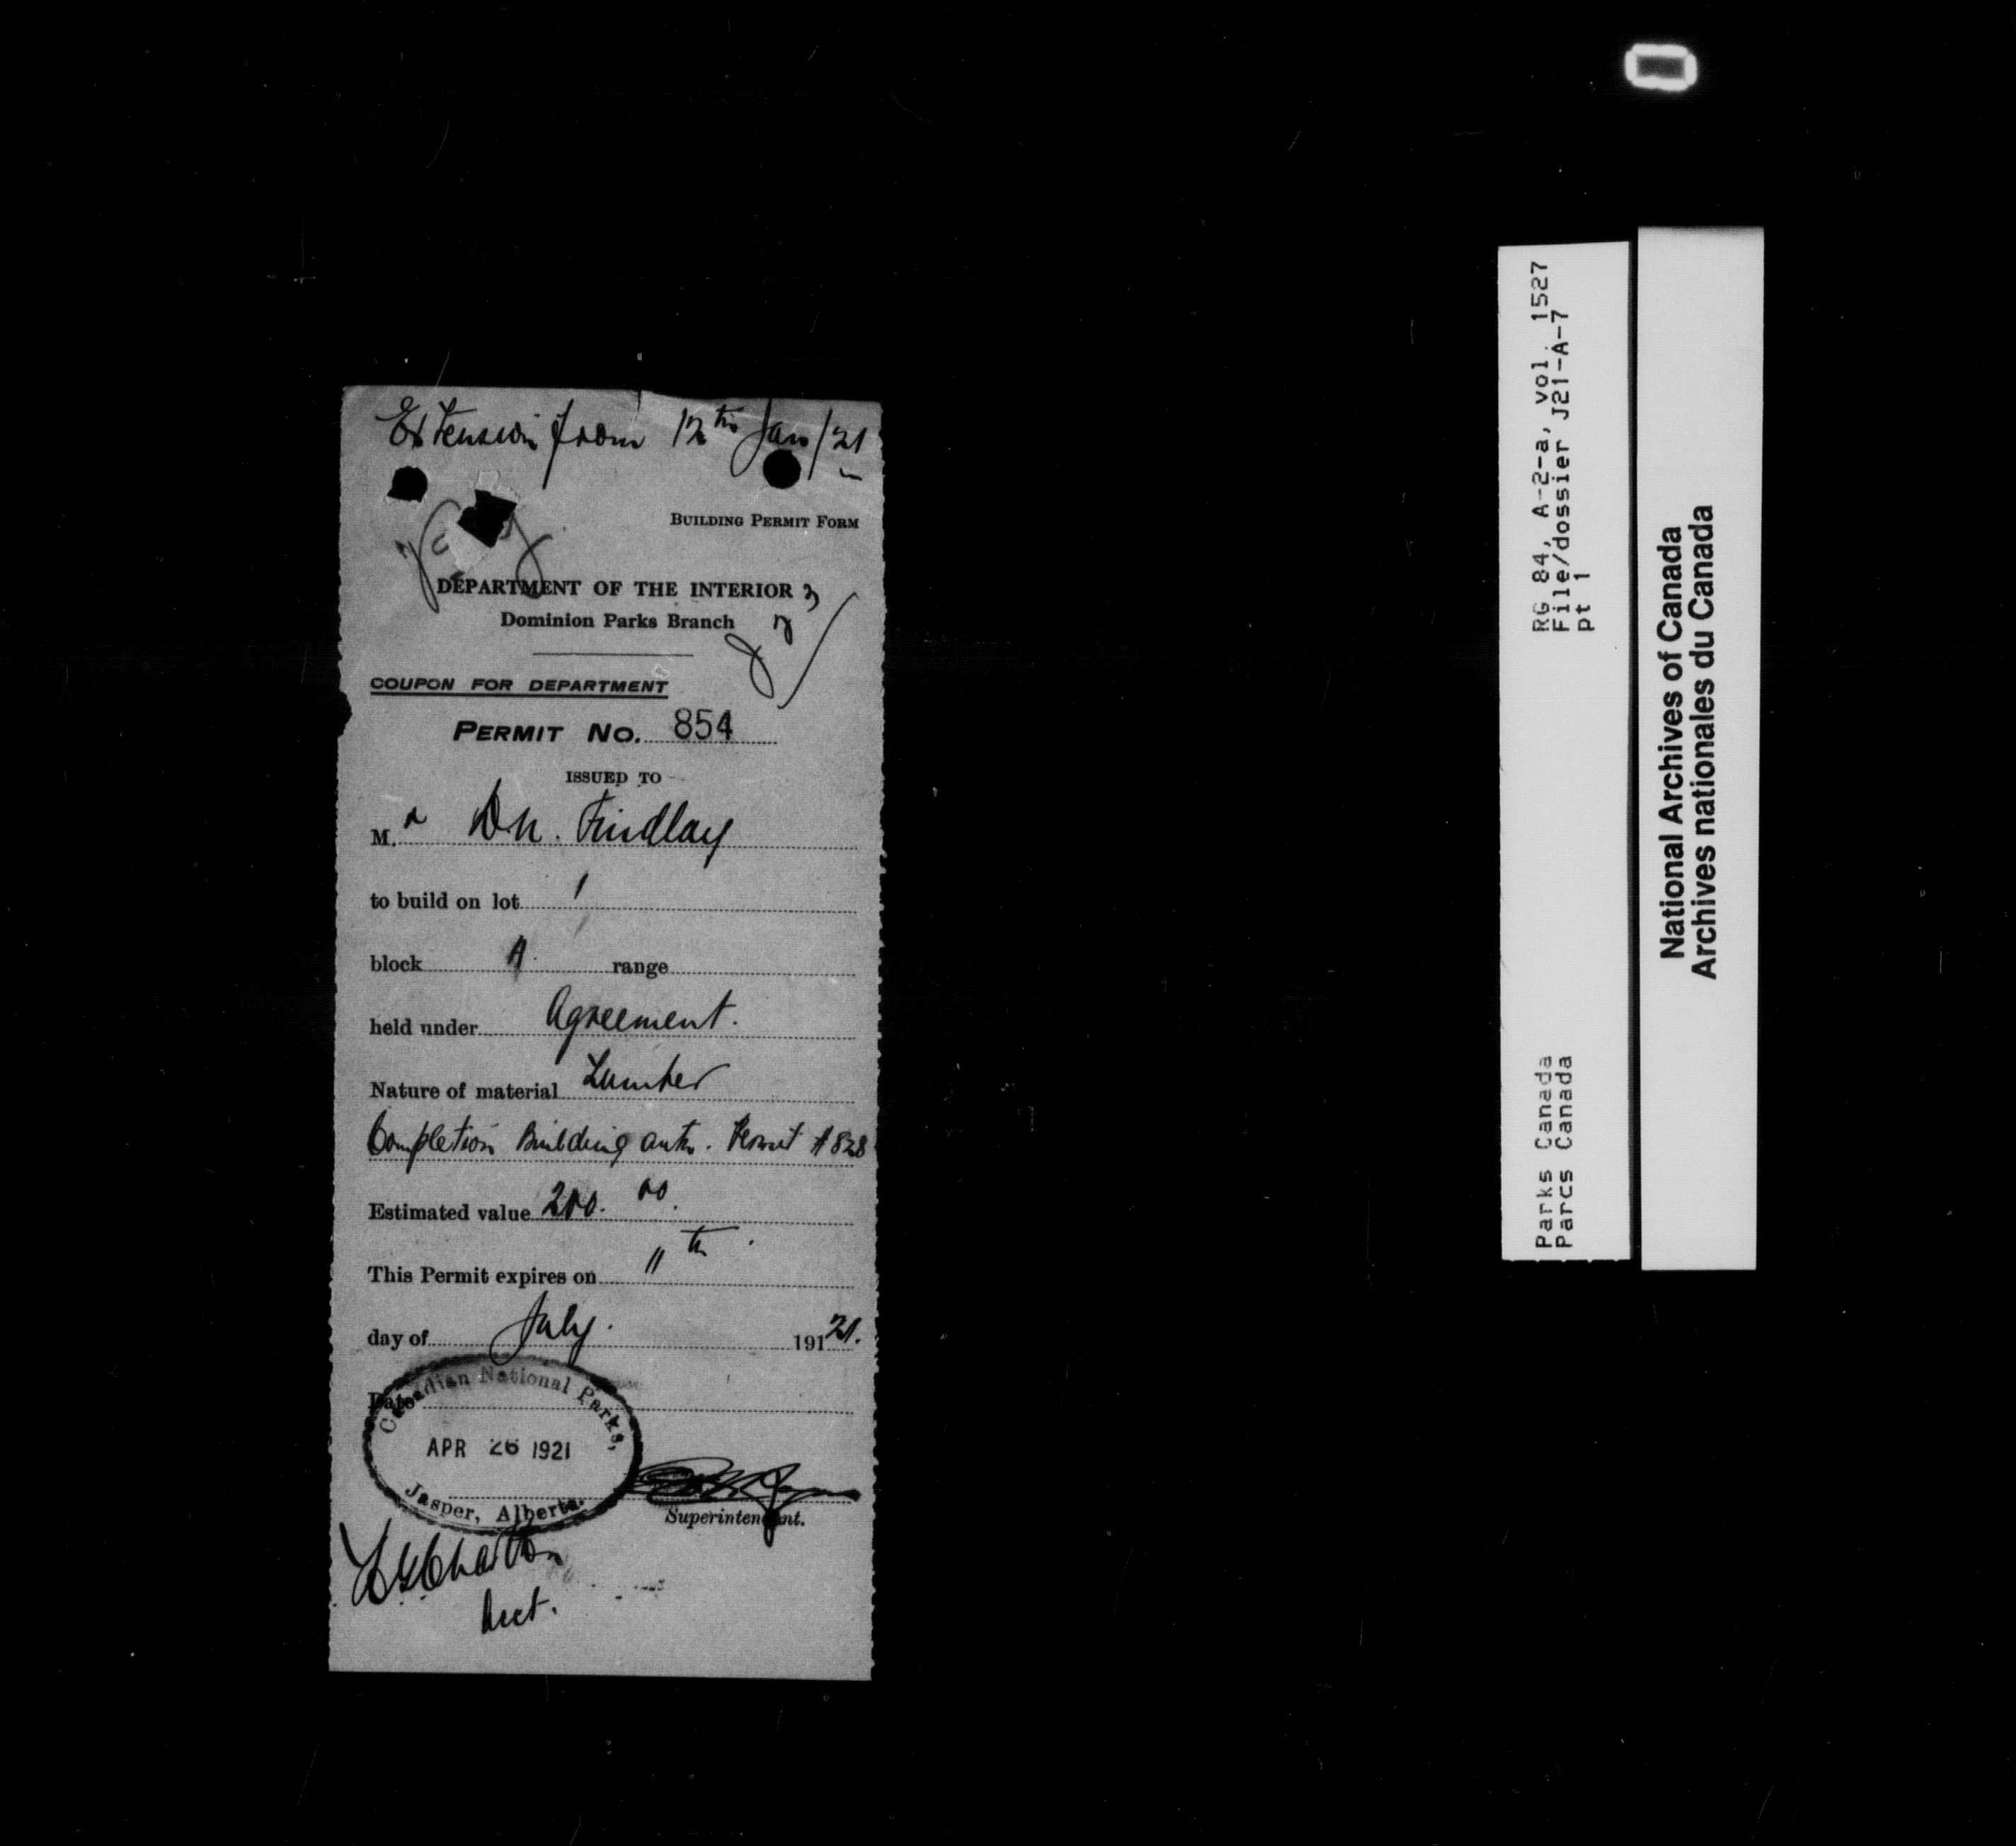 Extension from 12th Jan/21
BUILDING PERMIT FORM
DEPARTMENT OF THE INTERIOR
Dominion Parks Branch
COUPON FOR DEPARTMENT
PERMIT NO. 854
ISSUED TO
M.r Findlay
to build on lot 1
block A range
held under Agreement.
Nature of material Lumber
Completion Building auth. Permit #828
Estimated value 200.00
This Permit expires on 11th
day of July. 19121.
Date
Canadian National Parks,
APR 26 1921
Jasper, Alberta.
Superintendent.
RG 84, A-2-a, vol. 1527
File/dossier J21-A-7
pt 1
Parks Canada
Parcs Canada
National Archives of Canada
Archives nationales du Canada